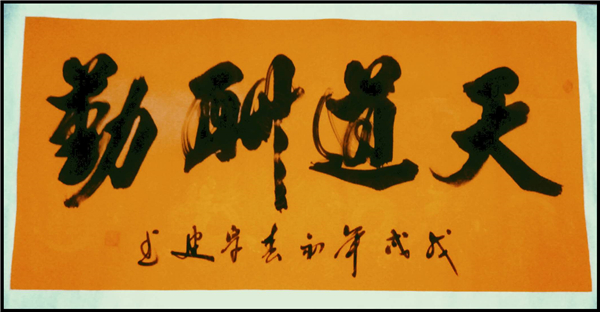 天道酬勤
戊戌年初春建书